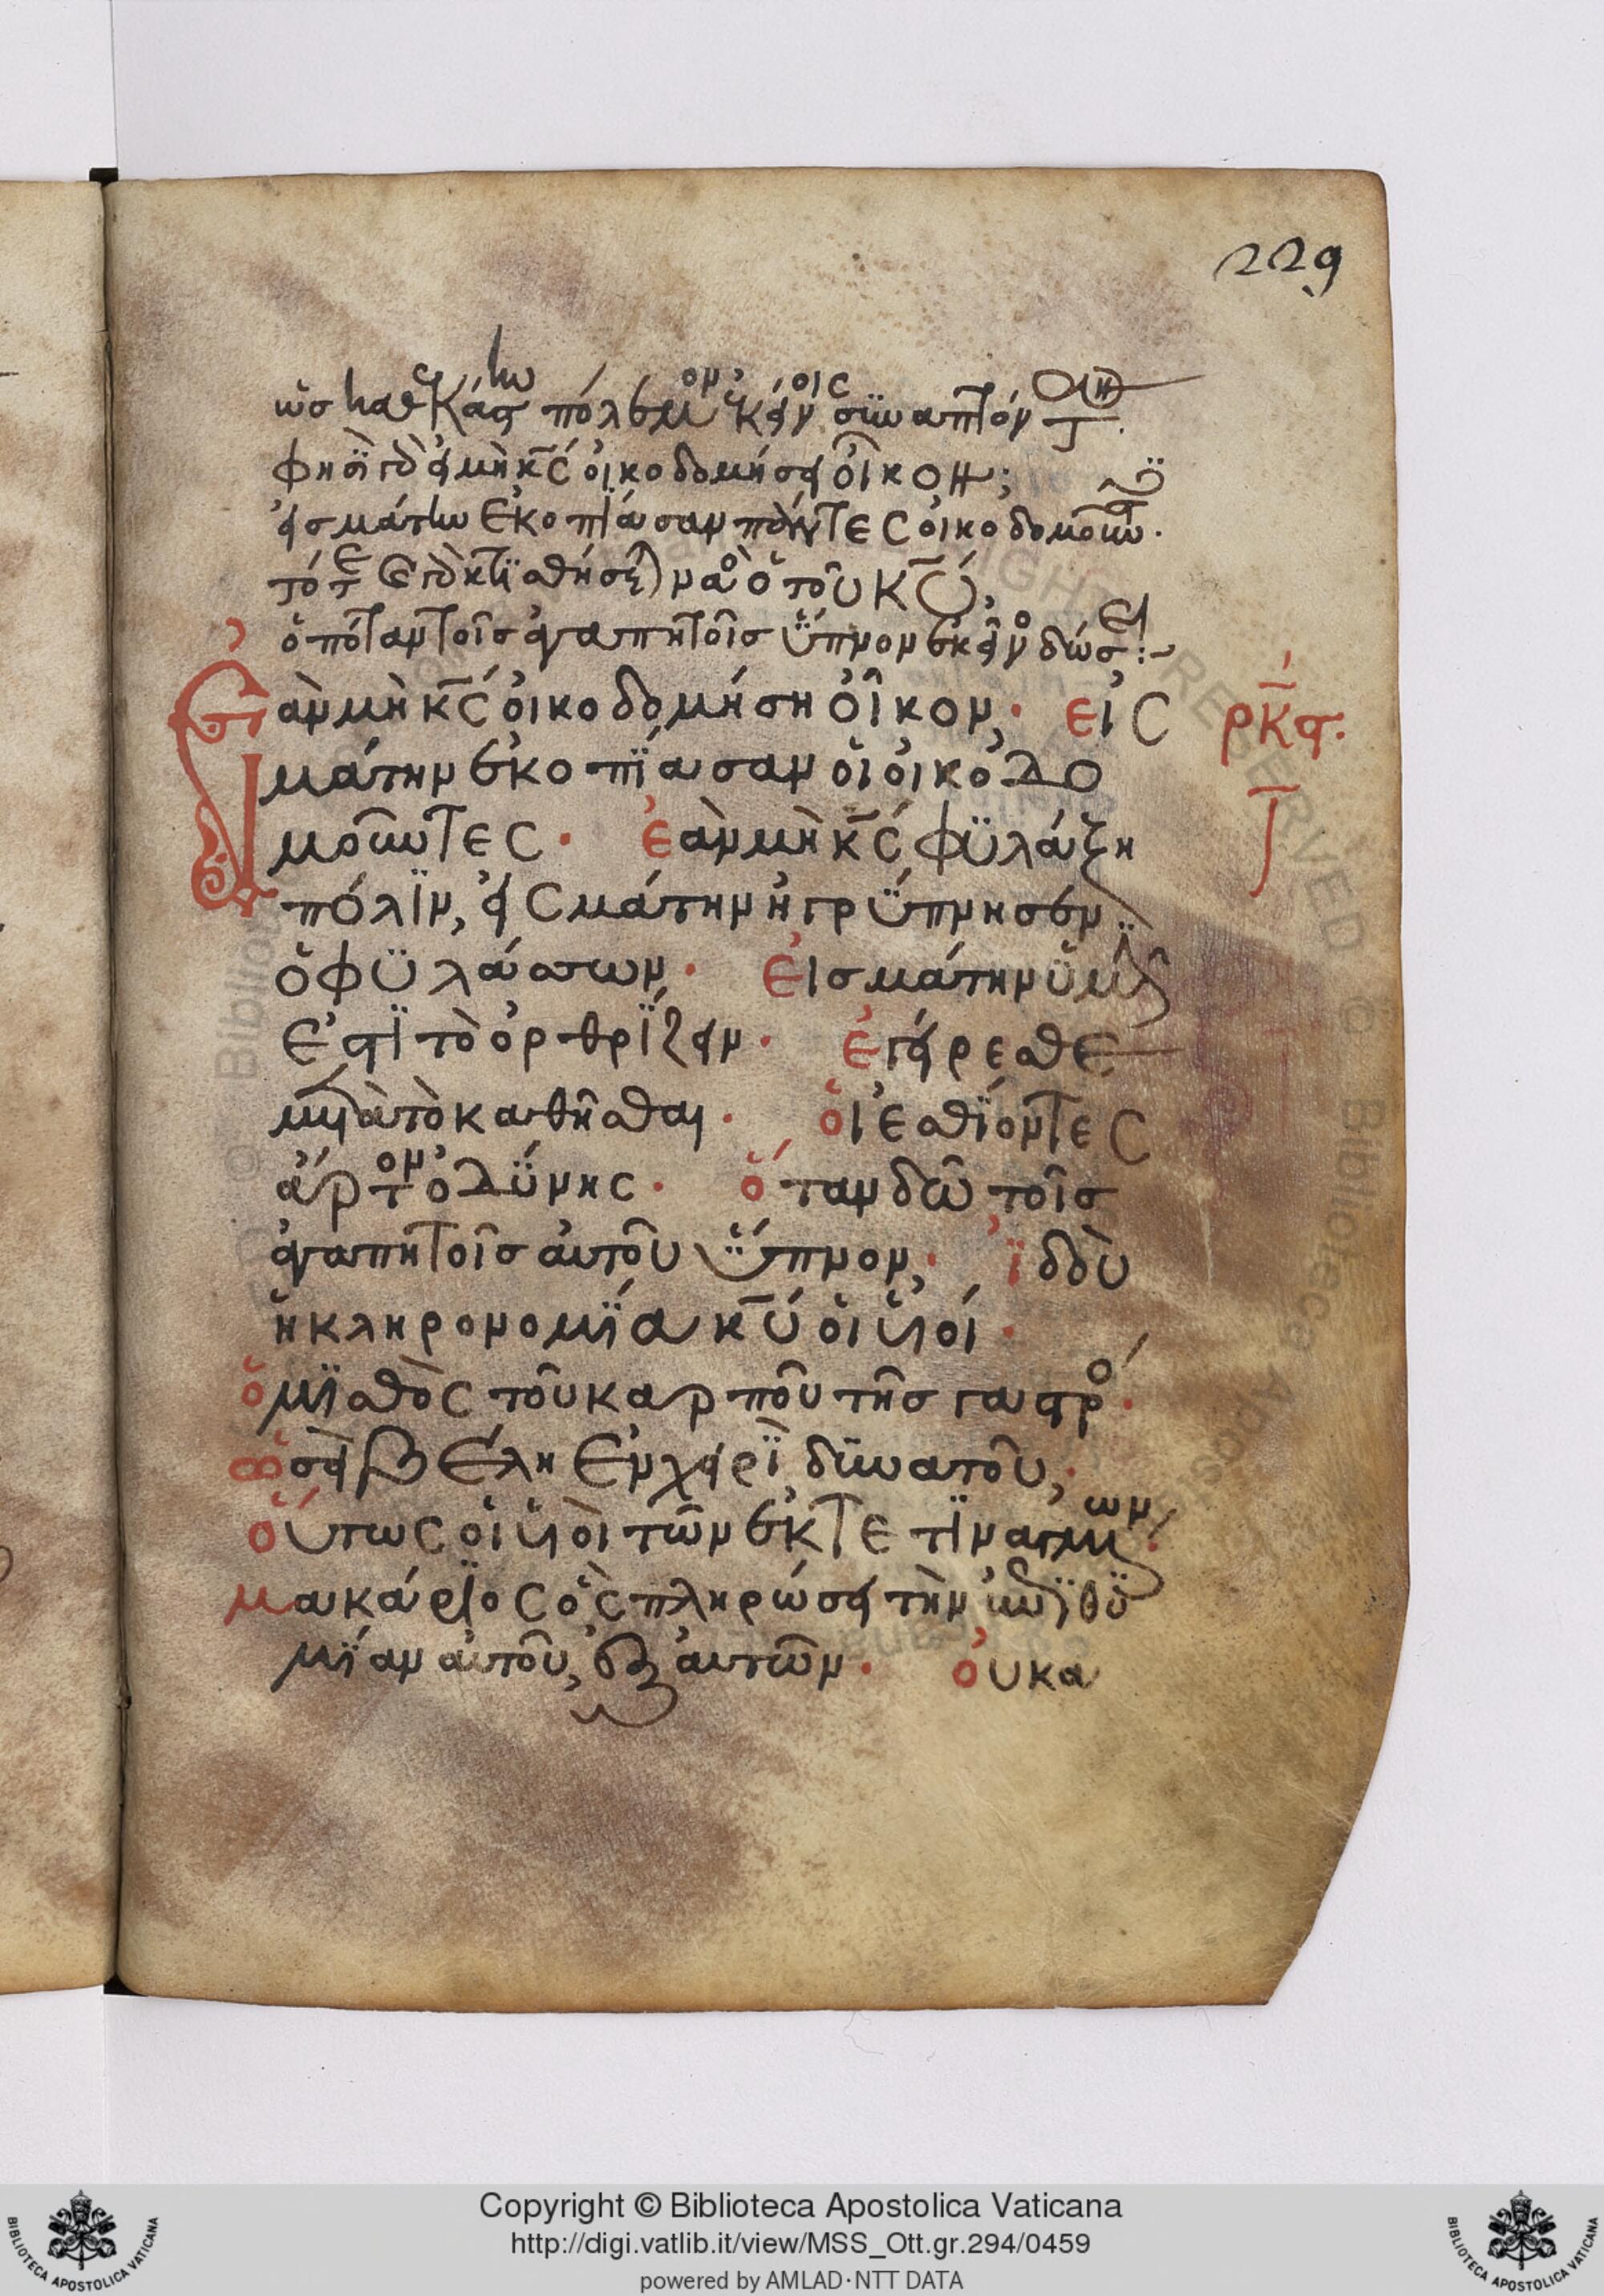 229
φησὶ γὰρ εἰ μὴ κ̅ς̅ οἰκοδομήσει οἶκον;
εἰς μάτην ἐκοπίασαν πάντες οἰκοδομοῦν.
ναὸς τοῦ κ̅υ̅,
ὁπόταν τοῖς ἀγαπητοῖς ὕπνον ἐκεῖνο δώσει:~
Ἐὰν μὴ κ̅ς̅ οἰκοδομήση οἶκον· εἰς
ρκϛ.
μάτην ἐκοπίασαν οἱ οἰκοδο
μοῦντες· ἐὰν μὴ κ̅ς̅ φυλάξη
πόλιν, εἰς μάτην ἠγρύπνησεν
ὁ φυλάσσων· εἰς μάτην ὑμῖν
ἐστὶ τὸ ὀρθρίζειν· ἐγείρεσθε
μετὰ τὸ καθῆσθαι· οἱ ἐσθίοντες
ἄρτον ὀδύνης· ὅταν δῶ τοῖς
ἀγαπητοῖς αὐτοῦ ὕπνον· ἰδοὺ
ἡ κληρονομία κ̅υ̅ υἱοί·
ὁ μισθὸς τοῦ καρποῦ τῆς γαστρός·
ὡσεὶ βέλη ἐν χειρὶ δυνατοῦ,·
οὕτως οἱ υἱοὶ τῶν ἐκτετιναγμένων·
μακάριος ὃς πληρώσει τὴν ἐπιθυ
μίαν αὐτοῦ, ἐξ αὐτῶν· οὐ κα
Copyright © Biblioteca Apostolica Vaticana
http://digi.vatlib.it/view/MSS_Ott.gr.294/0459
powered by AMLAD·NTT DATA
BIBLIOTECA APOSTOLICA VATICANA
BIBLIOTECA APOSTOLICA VATICANA